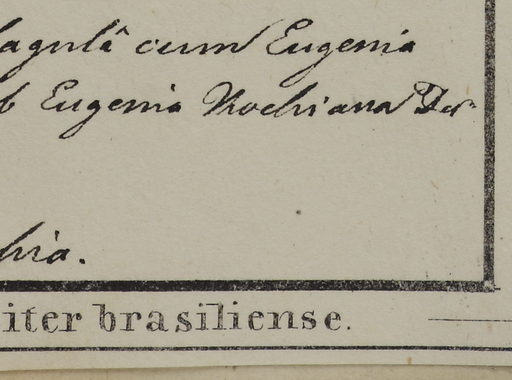 lagulâ cum Eugenia
b Eugenia Kochiana Der
hia.
iter brasiliense.